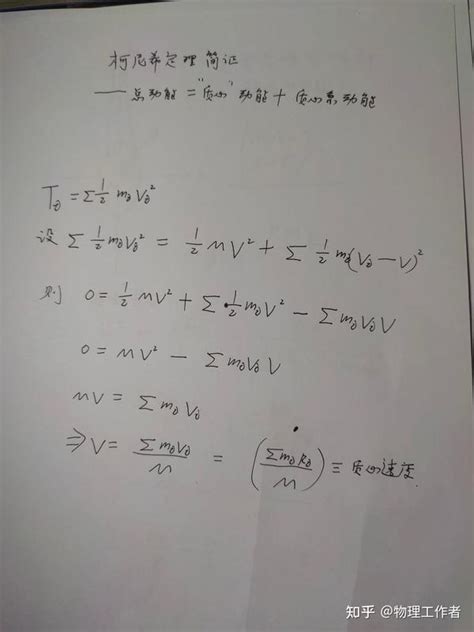 柯尼希定理 简证
——总动能 = "质心"动能 + 质心系动能
T_∂ = Σ ½ m_∂ V_∂²
设 Σ ½ m_∂ V_∂² = ½ M V² + Σ ½ m_∂ (V_∂ − V)²
则 0 = ½ M V² + Σ ½ m_∂ V² − Σ m_∂ V_∂ V
0 = M V² − Σ m_∂ V_∂ V
M V = Σ m_∂ V_∂
⇒ V = Σ m_∂ V_∂ / M = (Σ m_∂ R_∂ / M)˙ ≡ 质心速度.
知乎 @物理工作者